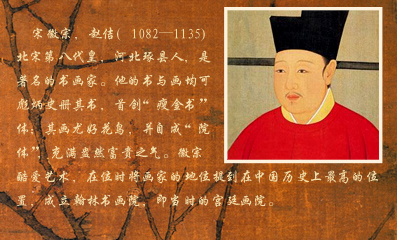 宋徽宗,赵佶( 1082—1135)
北宋第八代皇,河北琢县人,是
著名的书画家。他的书与画均可
彪炳史册其书,首创“瘦金书”
体,其画尤好花鸟,并自成“院
体”,充满盎然富贵之气。徽宗
酷爱艺术,在位时将画家的地位提到在中国历史上最高的位
置,成立翰林书画院,即当时的宫廷画院。